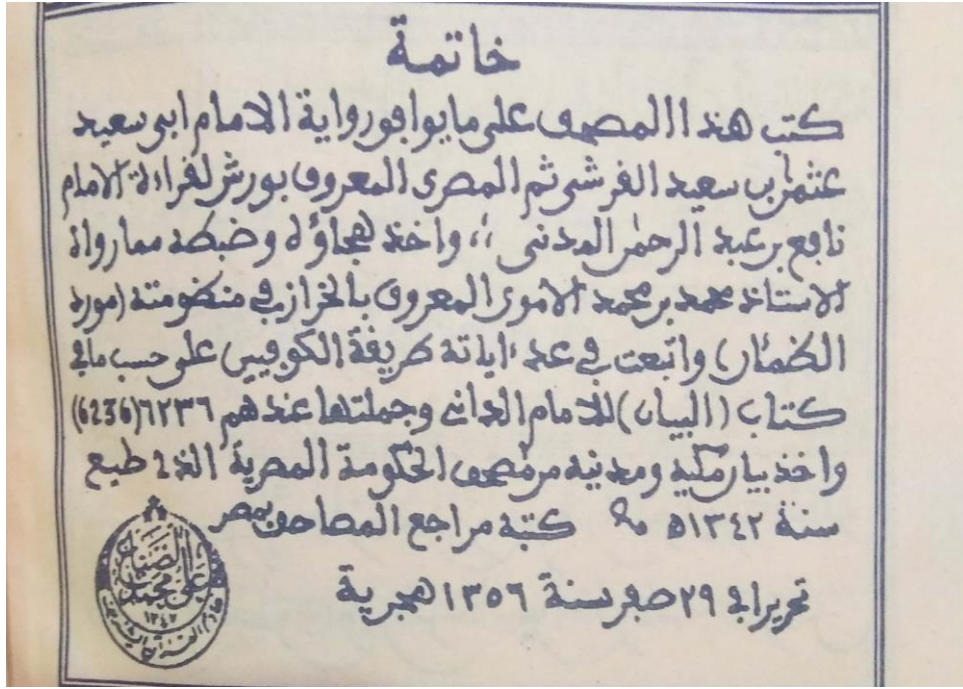 خاتمة
كتب هذا المصحف على ما يوافق رواية الامام ابي سعيد
عثمٰن بن سعيد القرشي ثم المصري المعروف بورش لقراءة الامام
نافع بن عبد الرحمٰن المدني ،، واخذ هجاؤه وضبطه مما رواه
الاستاذ محمد بن محمد الاموي المعروف بالخراز في منظومته (مورد
الظمئان) واتبعت في عدد ءاياته طريقة الكوفيين على حسب ما في
كتاب (البيان) للامام الداني وجملتها عندهم ٦٢٣٦ (6236)
واخذ بيان مكيه ومدنيه من مصحف الحكومة المصرية الذي طبع
سنة ١٣٤٢ ه كتبه مراجع المصاحف بمصر
تحريرا في ٢٩ صفر سنة ١٣٥٦ هجرية
على محمد الضباع
١٣٤٢